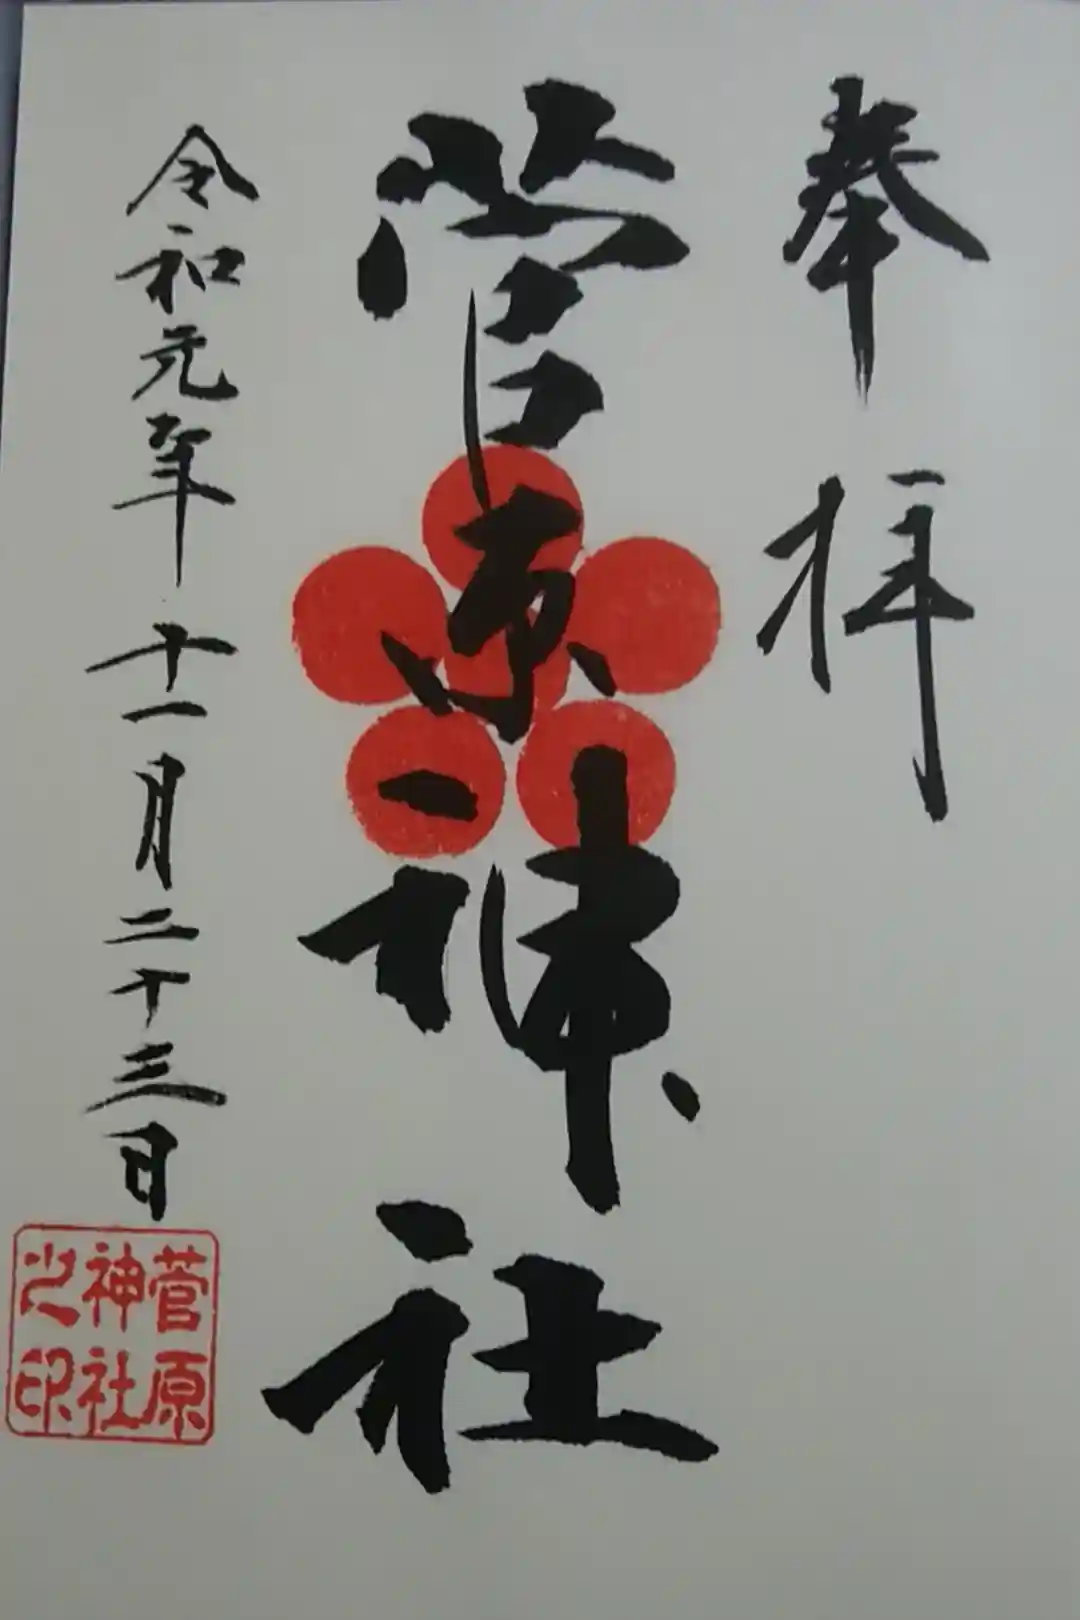 奉拝
菅原神社
令和元年十一月二十三日
菅原
神社
之印